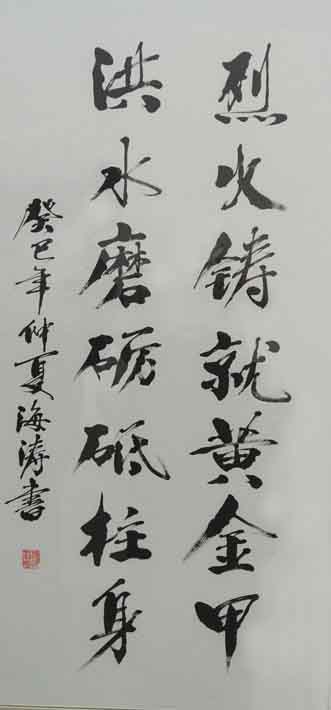 烈火铸就黄金甲
洪水磨砺砥柱身
癸巳年仲夏海涛书